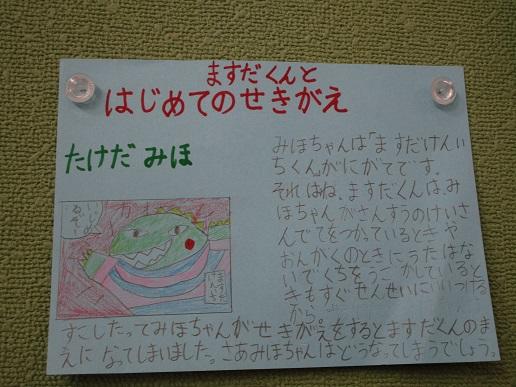 ますだくんと
はじめてのせきがえ
たけだ みほ
みほちゃんは「ますだけんい
ちくん」がにがてです。
それはね、ますだくんは、み
ほちゃんがさんすうのけいさ
んでてをつかっているときや
おんがくのときにうたはな
いでくちをうごかしていると
きもすぐせんせいにいいつける
から。
すこしたってみほちゃんがせきがえをするとますだくんのま
えになってしまいました。さあみほちゃんはどうなってしまうでしょう。
ますだ
けんいち